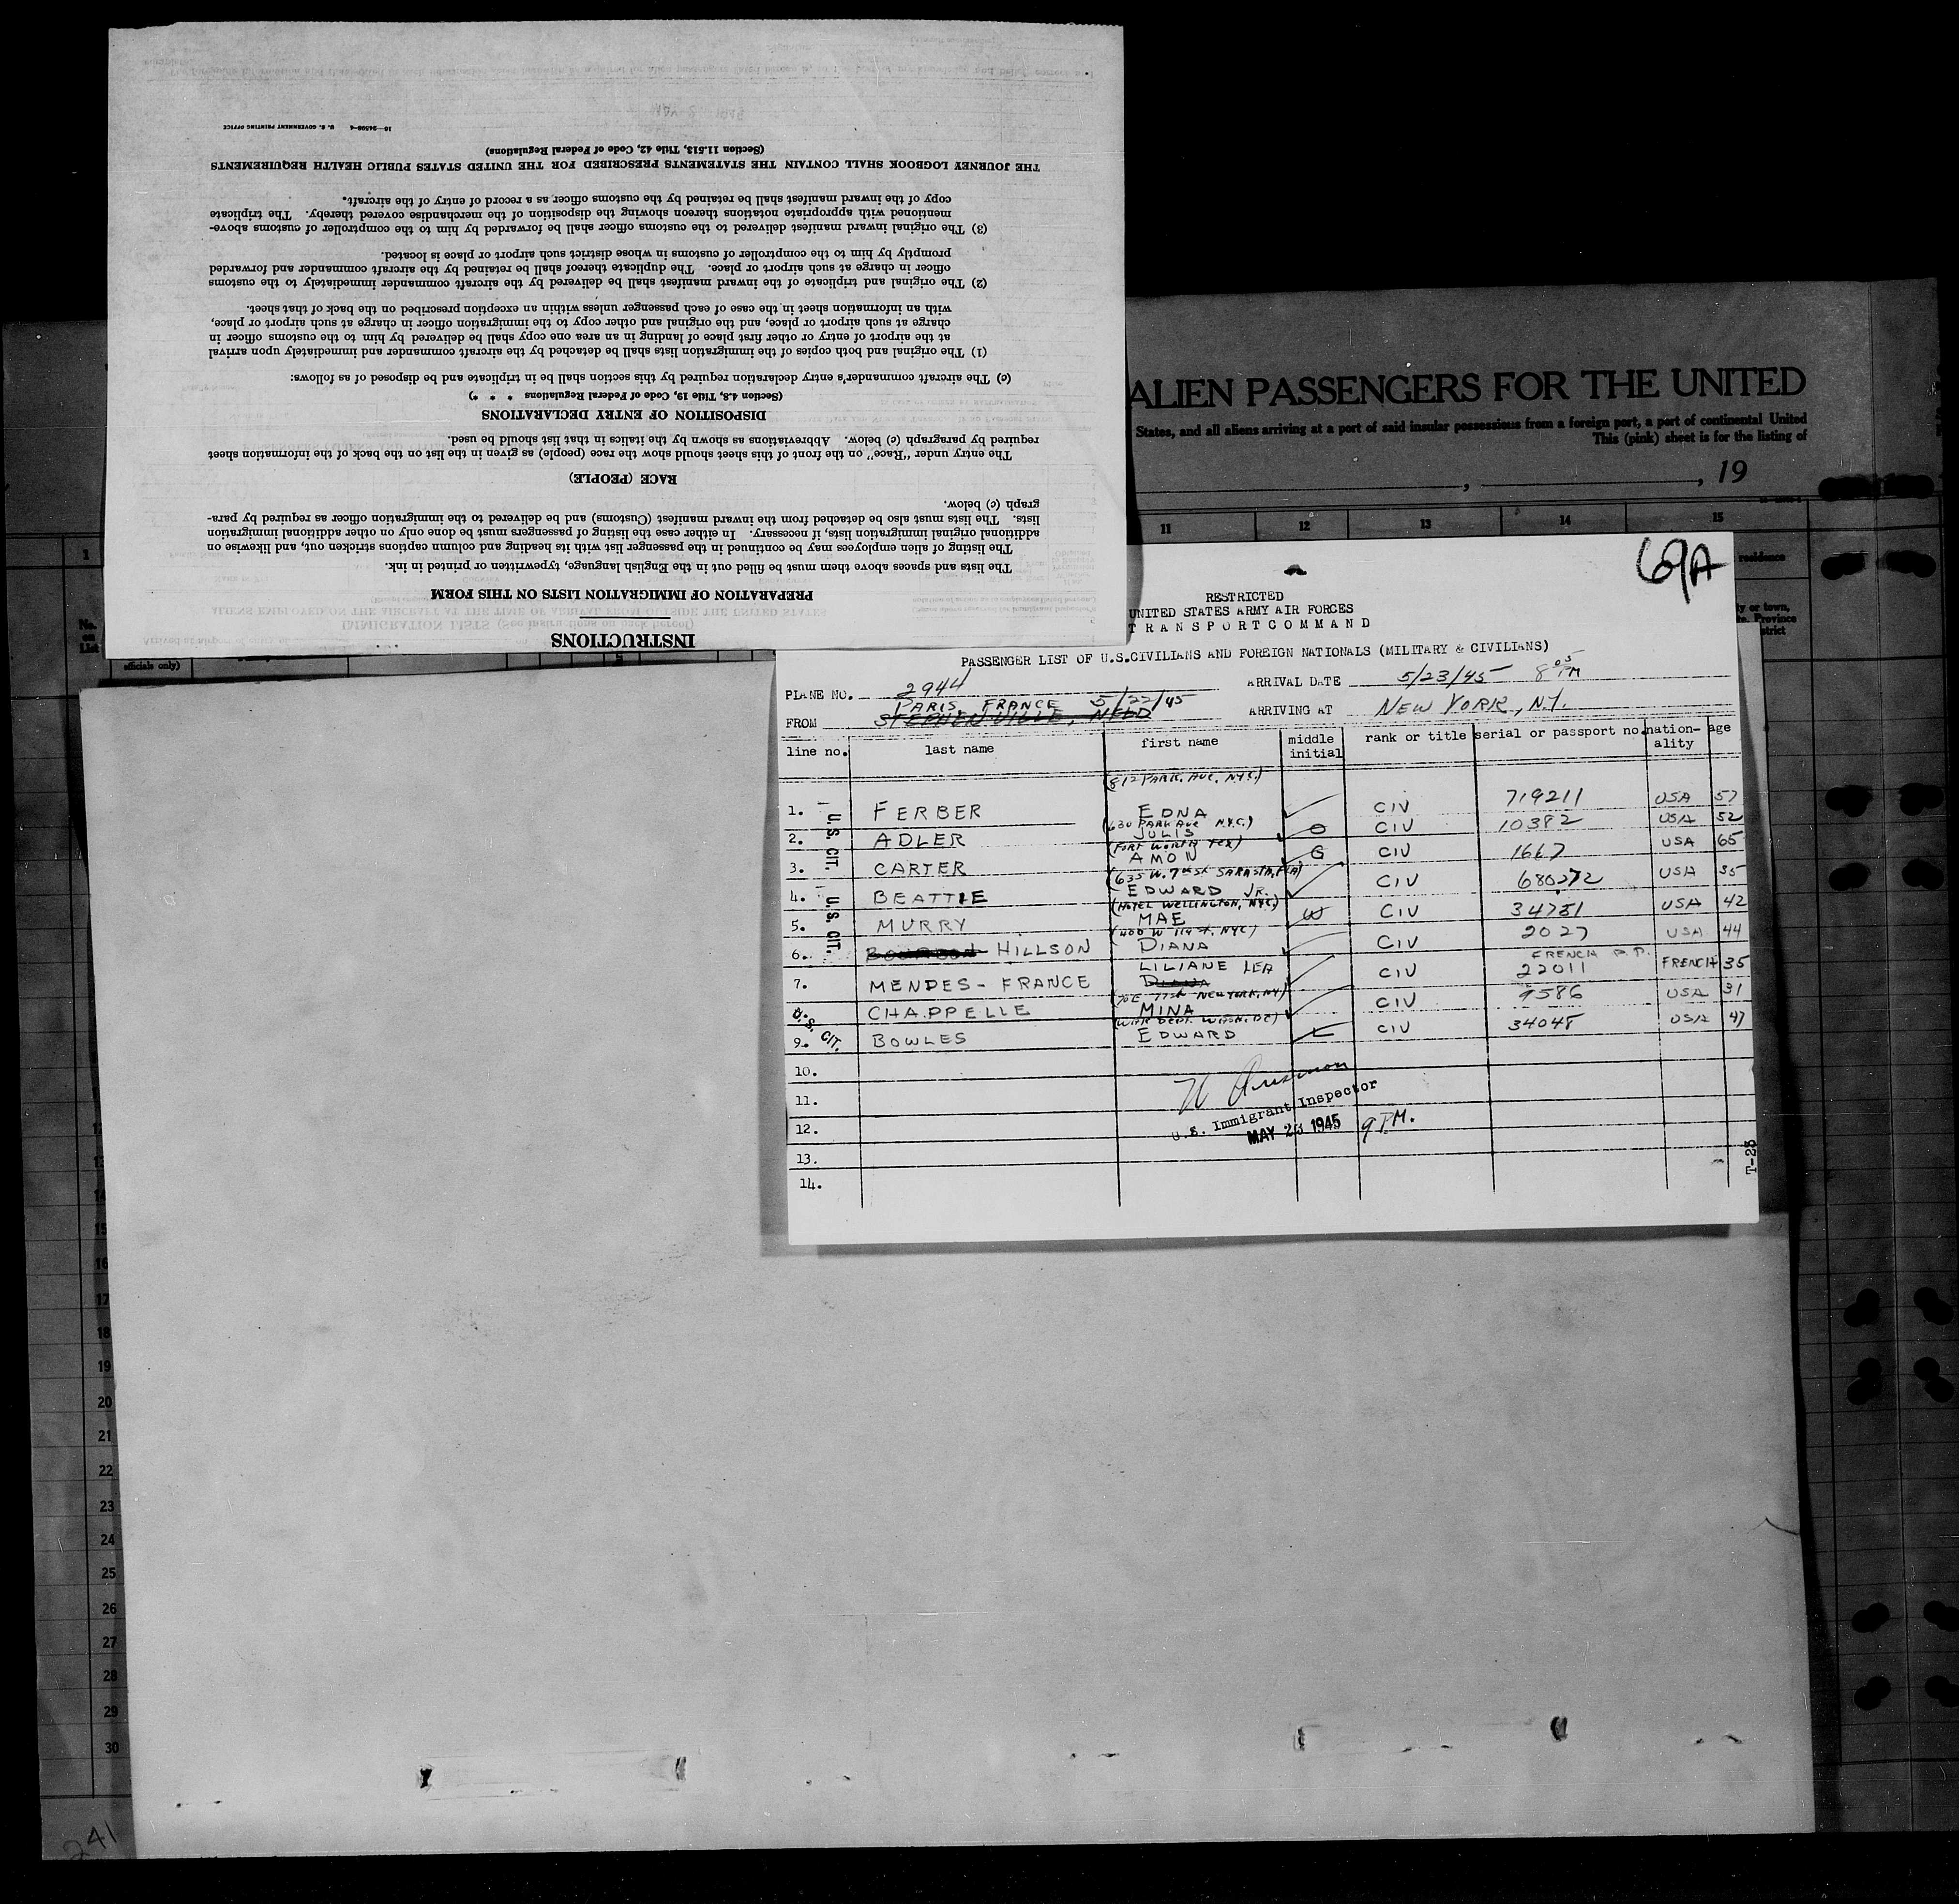 INSTRUCTIONS
PREPARATION OF IMMIGRATION LISTS ON THIS FORM
The lists and spaces above them must be filled out in the English language, typewritten or printed in ink.
The listing of alien employees may be continued in the passenger list with its heading and column captions stricken out, and likewise on
additional original immigration lists, if necessary. In either case the listing of passengers must be done only on other additional immigration
lists. The lists must also be detached from the inward manifest (Customs) and be delivered to the immigration officer as required by para-
graph (c) below.
RACE (PEOPLE)
The entry under "Race" on the front of this sheet should show the race (people) as given in the list on the back of the information sheet
required by paragraph (c) below. Abbreviations as shown by the italics in that list should be used.
DISPOSITION OF ENTRY DECLARATIONS
(Section 4.8, Title 19, Code of Federal Regulations * * *)
(c) The aircraft commander's entry declaration required by this section shall be in triplicate and be disposed of as follows:
(1) The original and both copies of the immigration lists shall be detached by the aircraft commander and immediately upon arrival
at the airport of entry or other first place of landing in an area one copy shall be delivered by him to the customs officer in
charge at such airport or place, and the original and other copy to the immigration officer in charge at such airport or place,
with an information sheet in the case of each passenger unless within an exception prescribed on the back of that sheet.
(2) The original and triplicate of the inward manifest shall be delivered by the aircraft commander immediately to the customs
officer in charge at such airport or place. The duplicate thereof shall be retained by the aircraft commander and forwarded
promptly by him to the comptroller of customs in whose district such airport or place is located.
(3) The original inward manifest delivered to the customs officer shall be forwarded by him to the comptroller of customs above-
mentioned with appropriate notations thereon showing the disposition of the merchandise covered thereby. The triplicate
copy of the inward manifest shall be retained by the customs officer as a record of entry of the aircraft.
THE JOURNEY LOGBOOK SHALL CONTAIN THE STATEMENTS PRESCRIBED FOR THE UNITED STATES PUBLIC HEALTH REQUIREMENTS
(Section 11.513, Title 42, Code of Federal Regulations)
U. S. GOVERNMENT PRINTING OFFICE
ALIEN PASSENGERS FOR THE UNITED
States, and all aliens arriving at a port of said insular possessions from a foreign port, a part of continental United
This (pink) sheet is for the listing of
, , 19
11 12 13 14 15
residence
1
No. on List
officials only)
5
69A
RESTRICTED
UNITED STATES ARMY AIR FORCES
TRANSPORT COMMAND
PASSENGER LIST OF U.S.CIVILIANS AND FOREIGN NATIONALS (MILITARY & CIVILIANS)
PLANE NO. 2944 ARRIVAL DATE 5/23/45 8 05 PM
PARIS, FRANCE 5/22/45
FROM STEPHENVILLE, NFLD ARRIVING AT NEW YORK, N.Y.
line no. last name first name middle initial rank or title serial or passport no. nation-ality age
(812 PARK. AVE. N.Y.C.)
1. FERBER EDNA CIV 719211 USA 57
(630 PARK AVE N.Y.C.)
2. ADLER JULIS O CIV 10382 USA 52
(FORT WORTH TEX)
3. CARTER AMON G CIV 1667 USA 65
4. BEATTIE EDWARD JR. CIV 680272 USA 35
(HOTEL WELLINGTON, NYC)
5. MURRY MAE W CIV 34751 USA 42
(400 W 114 St. NYC)
6. HILLSON DIANA CIV 2027 USA 44
FRENCH P.P.
7. MENDES-FRANCE LILIANE LEA DIANA CIV 22011 FRENCH 35
8. CHAPPELLE MINA CIV 9586 USA 31
(WAR DEPT. WASH. DC)
9. BOWLES EDWARD L CIV 34048 USA 47
10.
11.
12.
13.
14.
U.S. CIT.
U.S. CIT.
U.S. CIT.
U.S. Immigrant Inspector
MAY 23 1945 9 P.M.
T-23
15
16
17
18
19
20
21
22
23
24
25
26
27
28
29
30
241